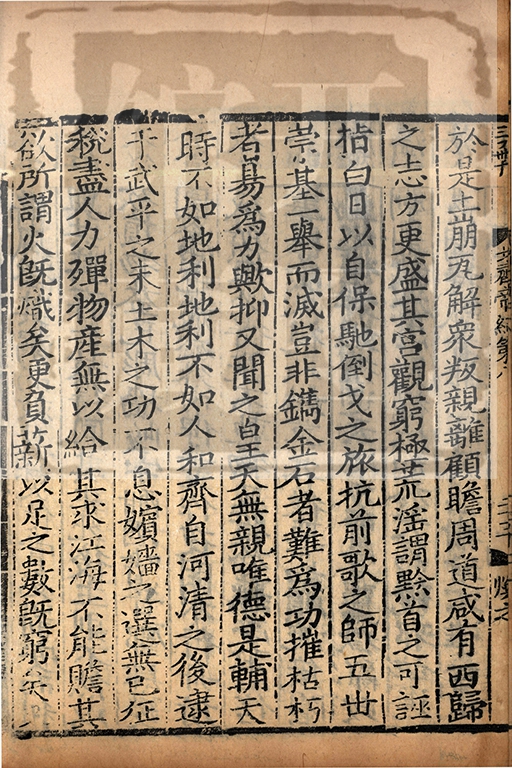 於是土崩瓦解衆叛親離顧瞻周道咸有西歸
之志方更盛其宫觀窮極荒淫謂黔首之可誣
指白日以自保馳倒戈之旅抗前歌之師五丗
崇基一舉而滅豈非鐫金石者難爲功摧枯朽
者昜爲力歟抑又聞之皇天無親唯德是輔天
時不如地利地利不如人和齊自河清之後逮
于武平之末土木之功不息嬪嬙之選無已征
稅盡人力殫物産無以給其求江海不能贍其
欲所謂火既熾矣更負薪以足之數既窮矣